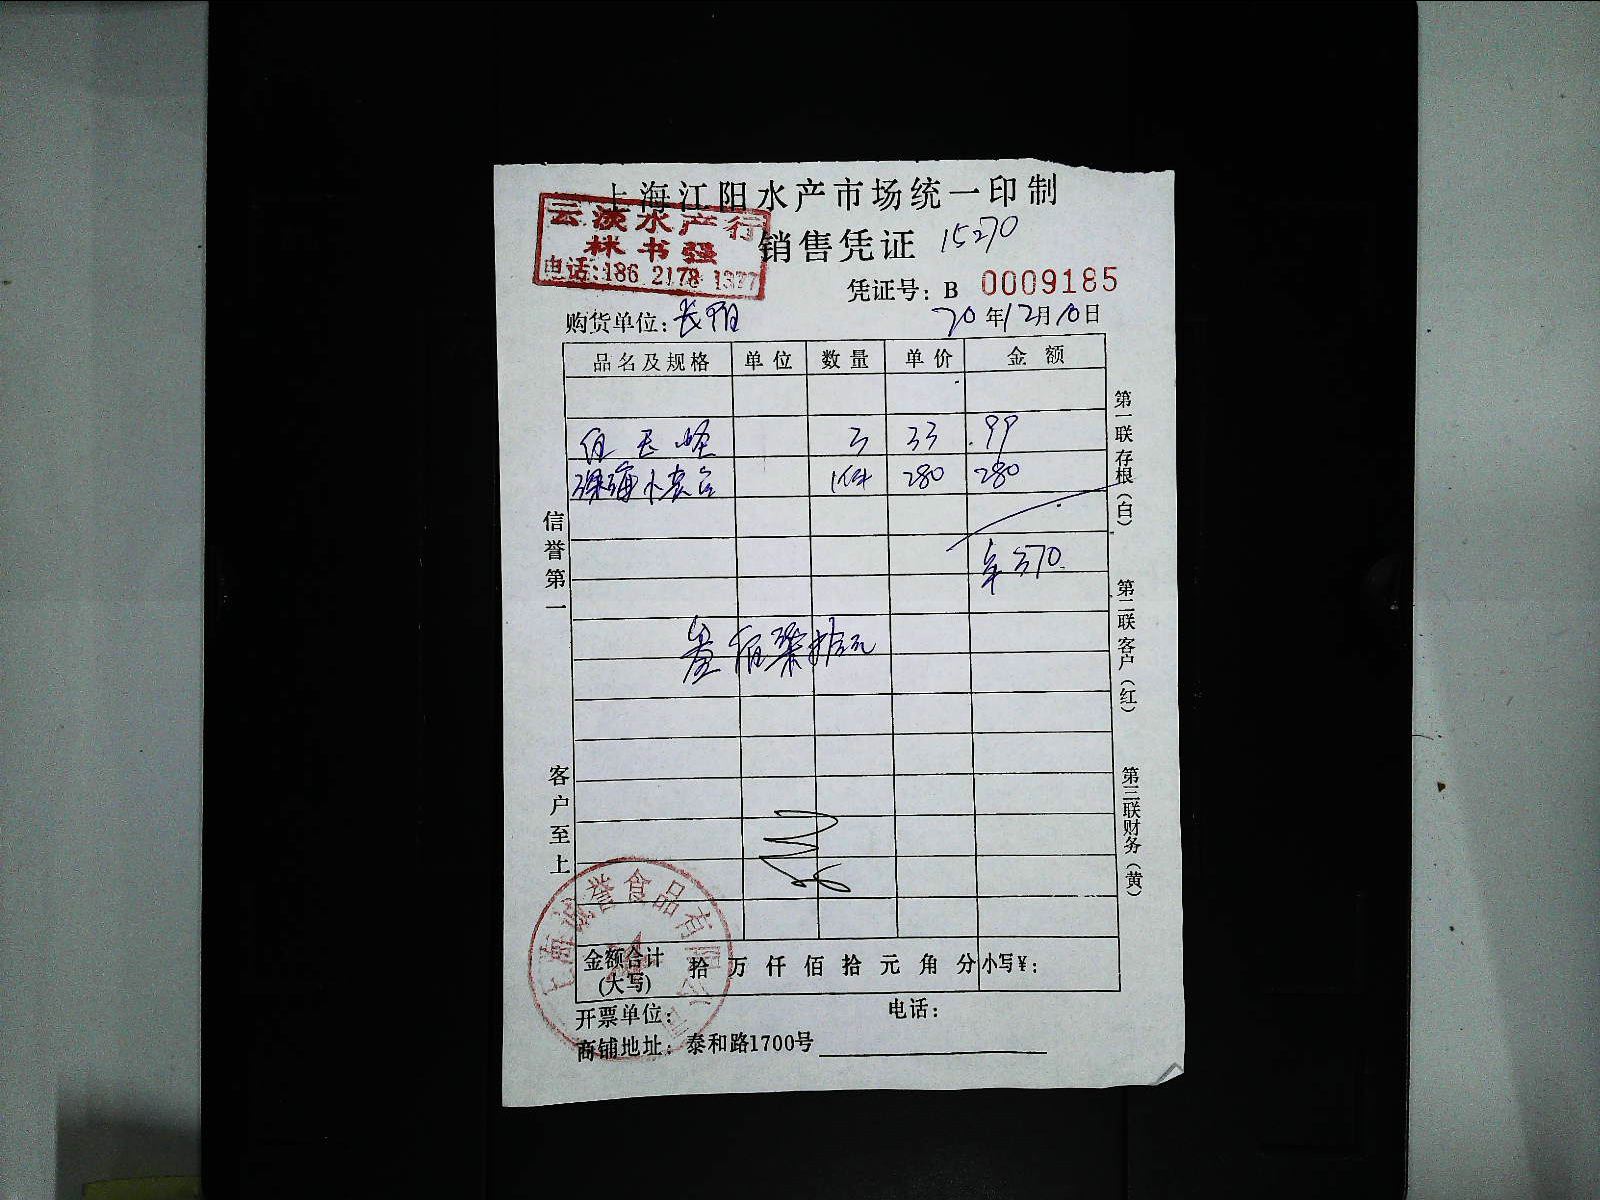 上海江阳水产市场统一印制
云淡水产行
林书强
电话:186 2178 1377
销售凭证 15270
凭证号: B 0009185
购货单位:
20年12月10日
品名及规格 单位 数量 单价 金额
三 33 99
珠海 1件 280 280
370
叁佰柒拾元
信誉第一
客户至上
第一联存根(白)
第二联客户(红)
第三联财务(黄)
上海诚誉食品有限公司
金额合计(大写) 拾 万 仟 佰 拾 元 角 分 小写¥:
开票单位: 电话:
商铺地址: 泰和路1700号